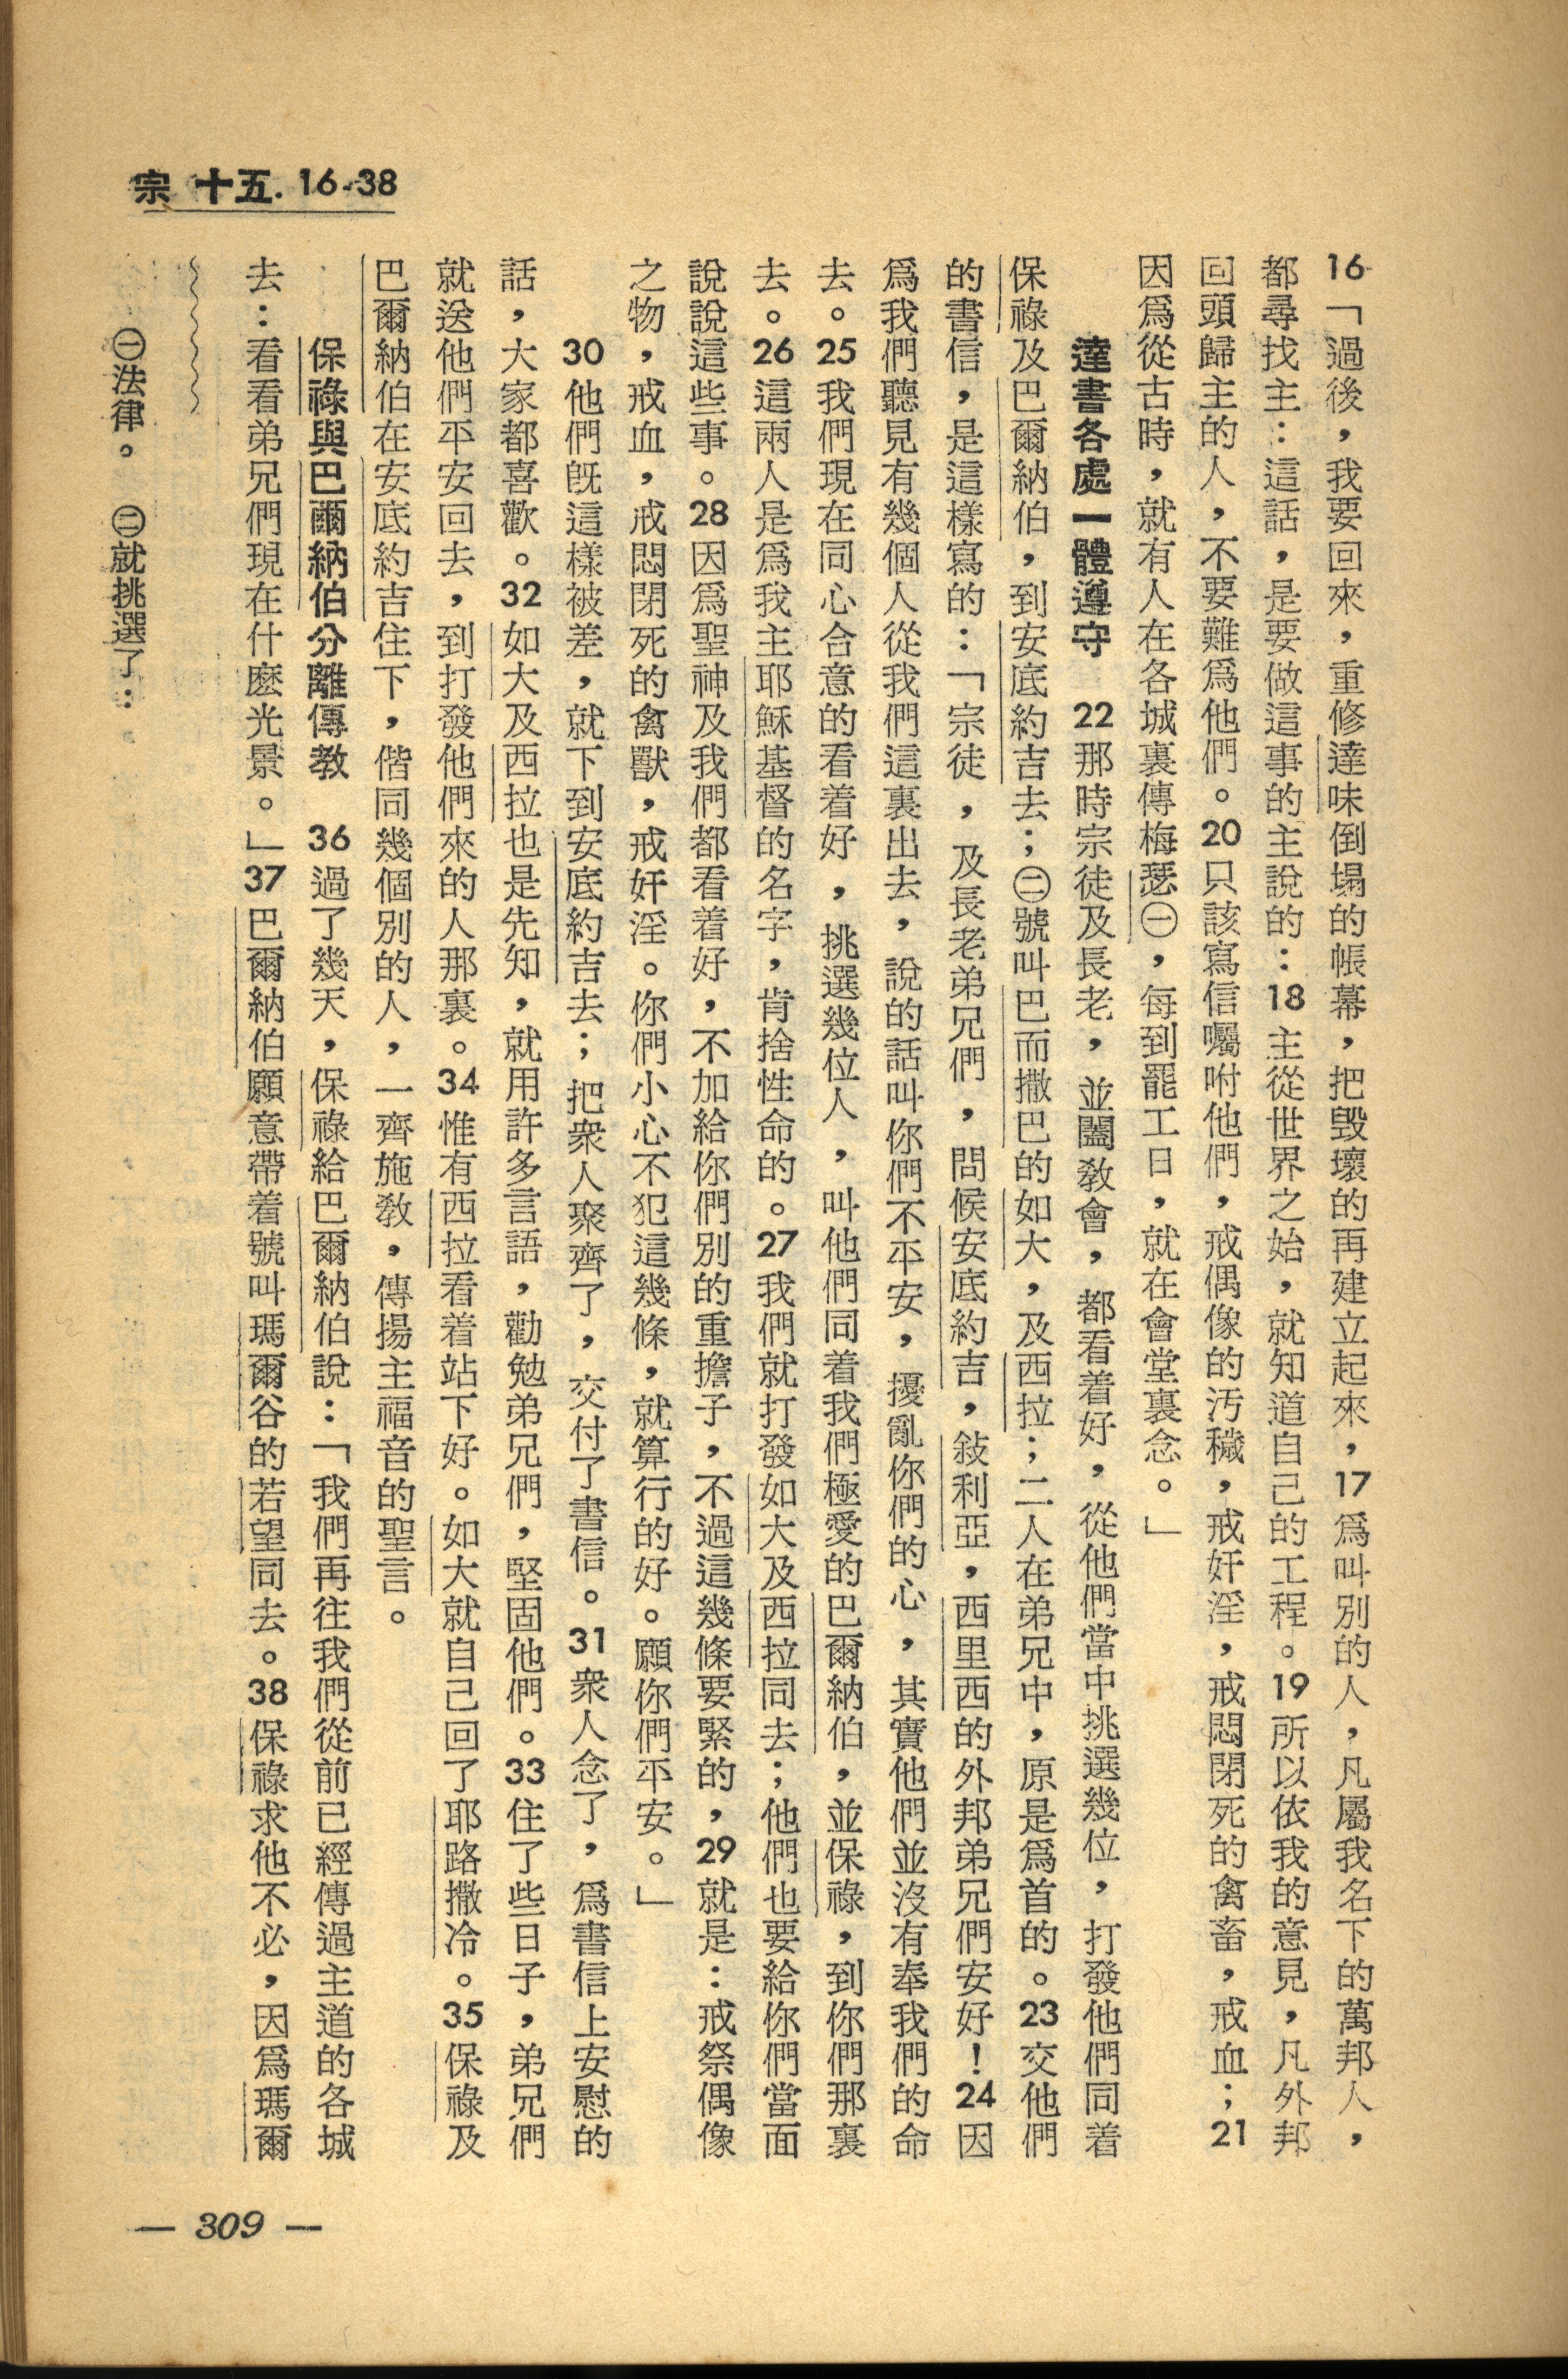 宗 十五. 16-38
16「過後，我要回來，重修達味倒塌的帳幕，把毀壞的再建立起來，17爲叫別的人，凡屬我名下的萬邦人，
都尋找主：這話，是要做這事的主說的：18主從世界之始，就知道自己的工程。19所以依我的意見，凡外邦
回頭歸主的人，不要難爲他們。20只該寫信囑咐他們，戒偶像的汚穢，戒奸淫，戒悶閉死的禽畜，戒血；21
因爲從古時，就有人在各城裏傳梅瑟㊀，每到罷工日，就在會堂裏念。」
達書各處一體遵守　22那時宗徒及長老，並闔敎會，都看着好，從他們當中挑選幾位，打發他們同着
保祿及巴爾納伯，到安底約吉去；㊁號叫巴而撒巴的如大，及西拉；二人在弟兄中，原是爲首的。23交他們
的書信，是這樣寫的：「宗徒，及長老弟兄們，問候安底約吉，敍利亞，西里西的外邦弟兄們安好！24因
爲我們聽見有幾個人從我們這裏出去，說的話叫你們不平安，擾亂你們的心，其實他們並沒有奉我們的命
去。25我們現在同心合意的看着好，挑選幾位人，叫他們同着我們極愛的巴爾納伯，並保祿，到你們那裏
去。26這兩人是爲我主耶穌基督的名字，肯捨性命的。27我們就打發如大及西拉同去；他們也要給你們當面
說說這些事。28因爲聖神及我們都看着好，不加給你們別的重擔子，不過這幾條要緊的，29就是：戒祭偶像
之物，戒血，戒悶閉死的禽獸，戒奸淫。你們小心不犯這幾條，就算行的好。願你們平安。」
30他們旣這樣被差，就下到安底約吉去；把衆人聚齊了，交付了書信。31衆人念了，爲書信上安慰的
話，大家都喜歡。32如大及西拉也是先知，就用許多言語，勸勉弟兄們，堅固他們。33住了些日子，弟兄們
就送他們平安回去，到打發他們來的人那裏。34惟有西拉看着站下好。如大就自己回了耶路撒冷。35保祿及
巴爾納伯在安底約吉住下，偕同幾個別的人，一齊施敎，傳揚主福音的聖言。
保祿與巴爾納伯分離傳教　36過了幾天，保祿給巴爾納伯說：「我們再往我們從前已經傳過主道的各城
去：看看弟兄們現在什麽光景。」37巴爾納伯願意帶着號叫瑪爾谷的若望同去。38保祿求他不必，因爲瑪爾
㊀法律。　㊁就挑選了：
— 309 —